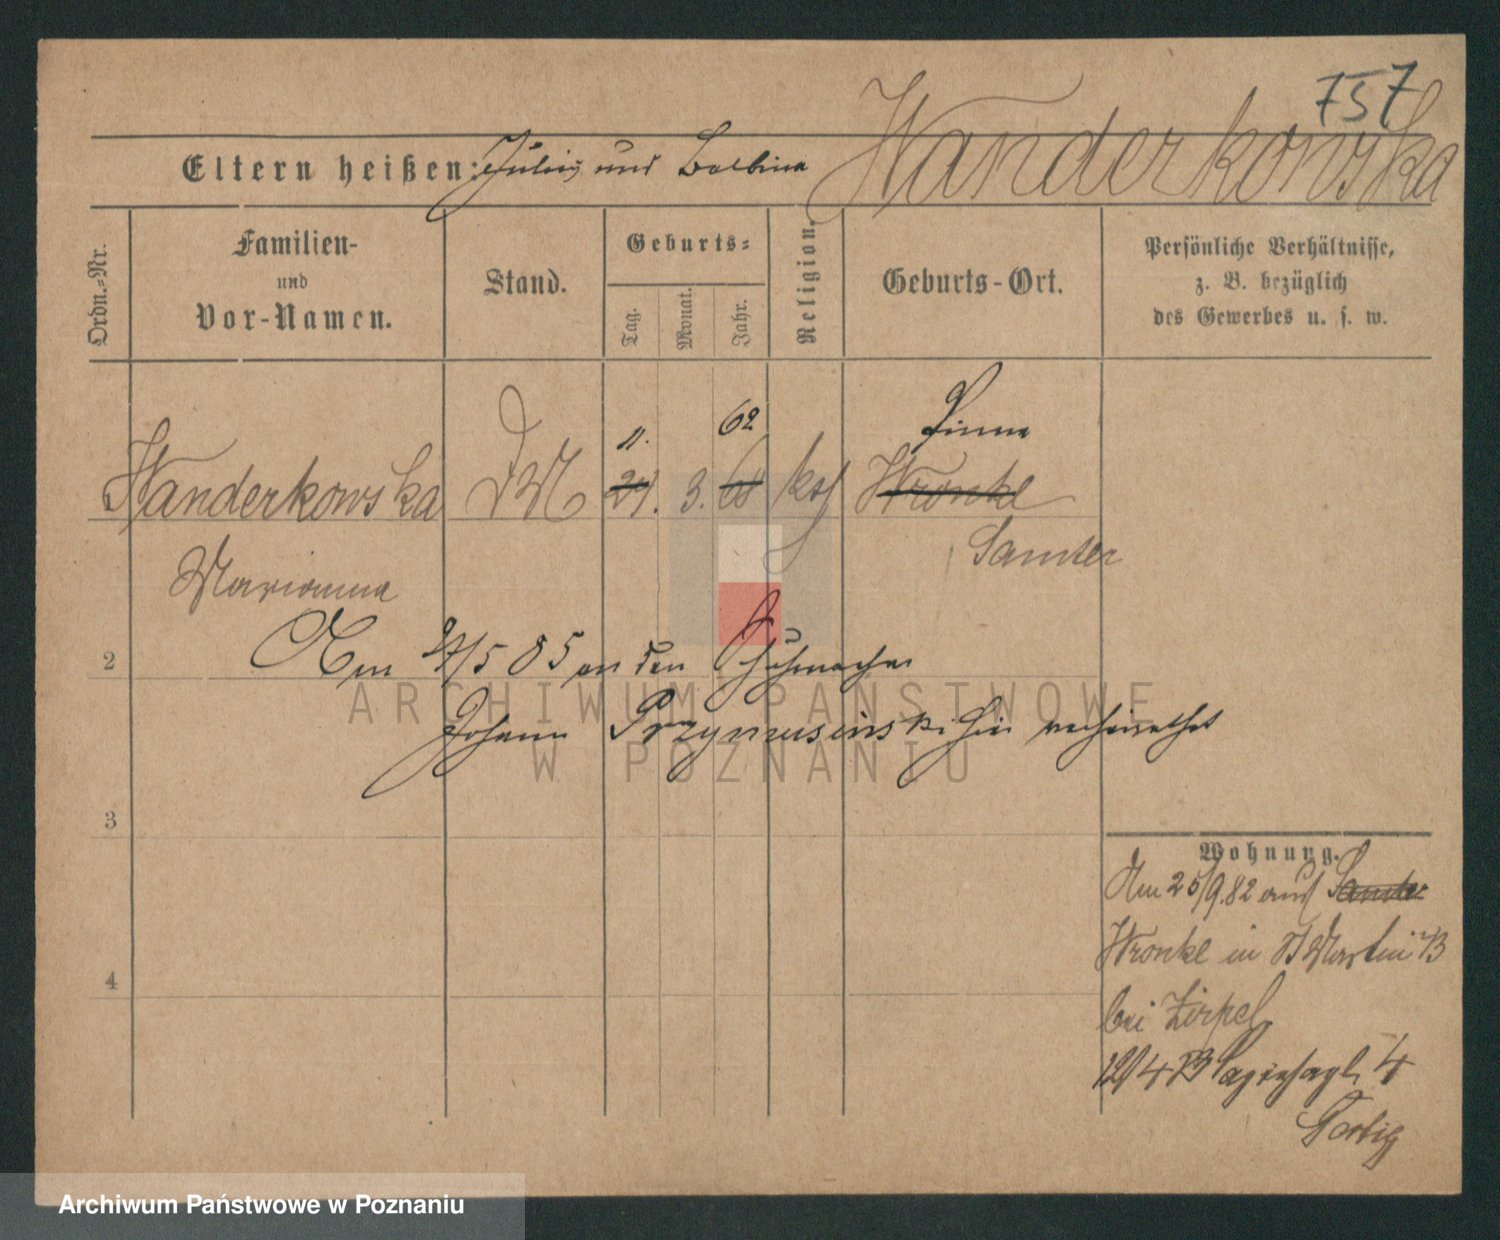 757
Wanderkowska
Eltern heißen: Julius und Balbina
Ordn.-Nr.
Familien-
und
Vor-Namen.
Stand.
Geburts-
Tag.
Monat.
Jahr.
Religion.
Geburts-Ort.
Persönliche Verhältnisse,
z. B. bezüglich
des Gewerbes u. s. w.
11. 62 Pinne
Wanderkowska DM 21. 3. 68 kat Wronke
Samter
Marianna
2 Am 27/5 85 an den Schuhmacher
Johann Przymusinski hier verheirathet
3
4
Wohnung.
Am 25/9.82 aus Samter
Wronke in St Martin 73
bei Zirpel
12/4 Sapiehapl. 4
ARCHIWUM PAŃSTWOWE
W POZNANIU
Archiwum Państwowe w Poznaniu